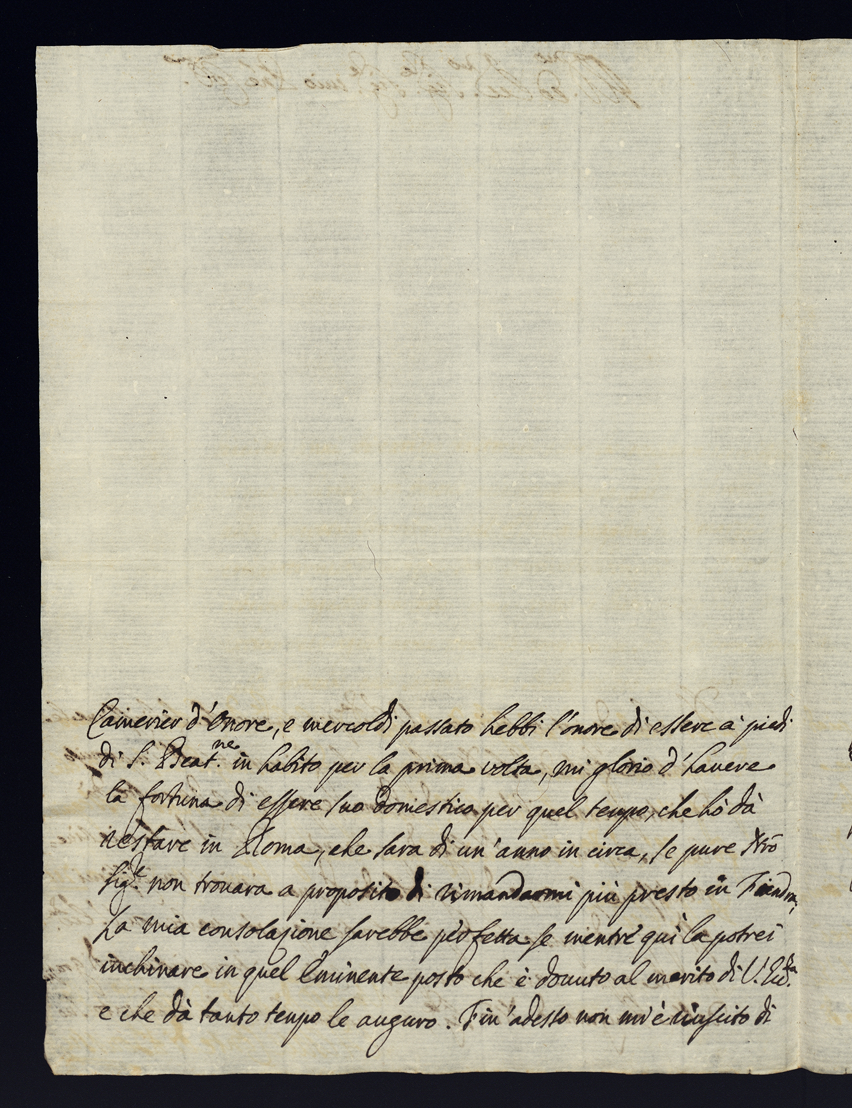 Camerier d'Onore, e mercoldi passato hebbi l'onore di essere a piedi
di S. Beat.ne in habito per la prima volta, mi glorio d'havere
la fortuna di essere suo domestico per quel tempo, che hò dà
restare in Roma, che sara di un'anno in circa, se pure Nrõ
Sig.re non trovara a proposito di rimandarmi più presto in Fiandra,
La mia consolazione sarebbe perfetta se mentre qui la potrei
inchinare in quel Eminente posto che è dovuto al merito di V.
e che dà tanto tempo le auguro. Fin'adesso non mi è riuscito di